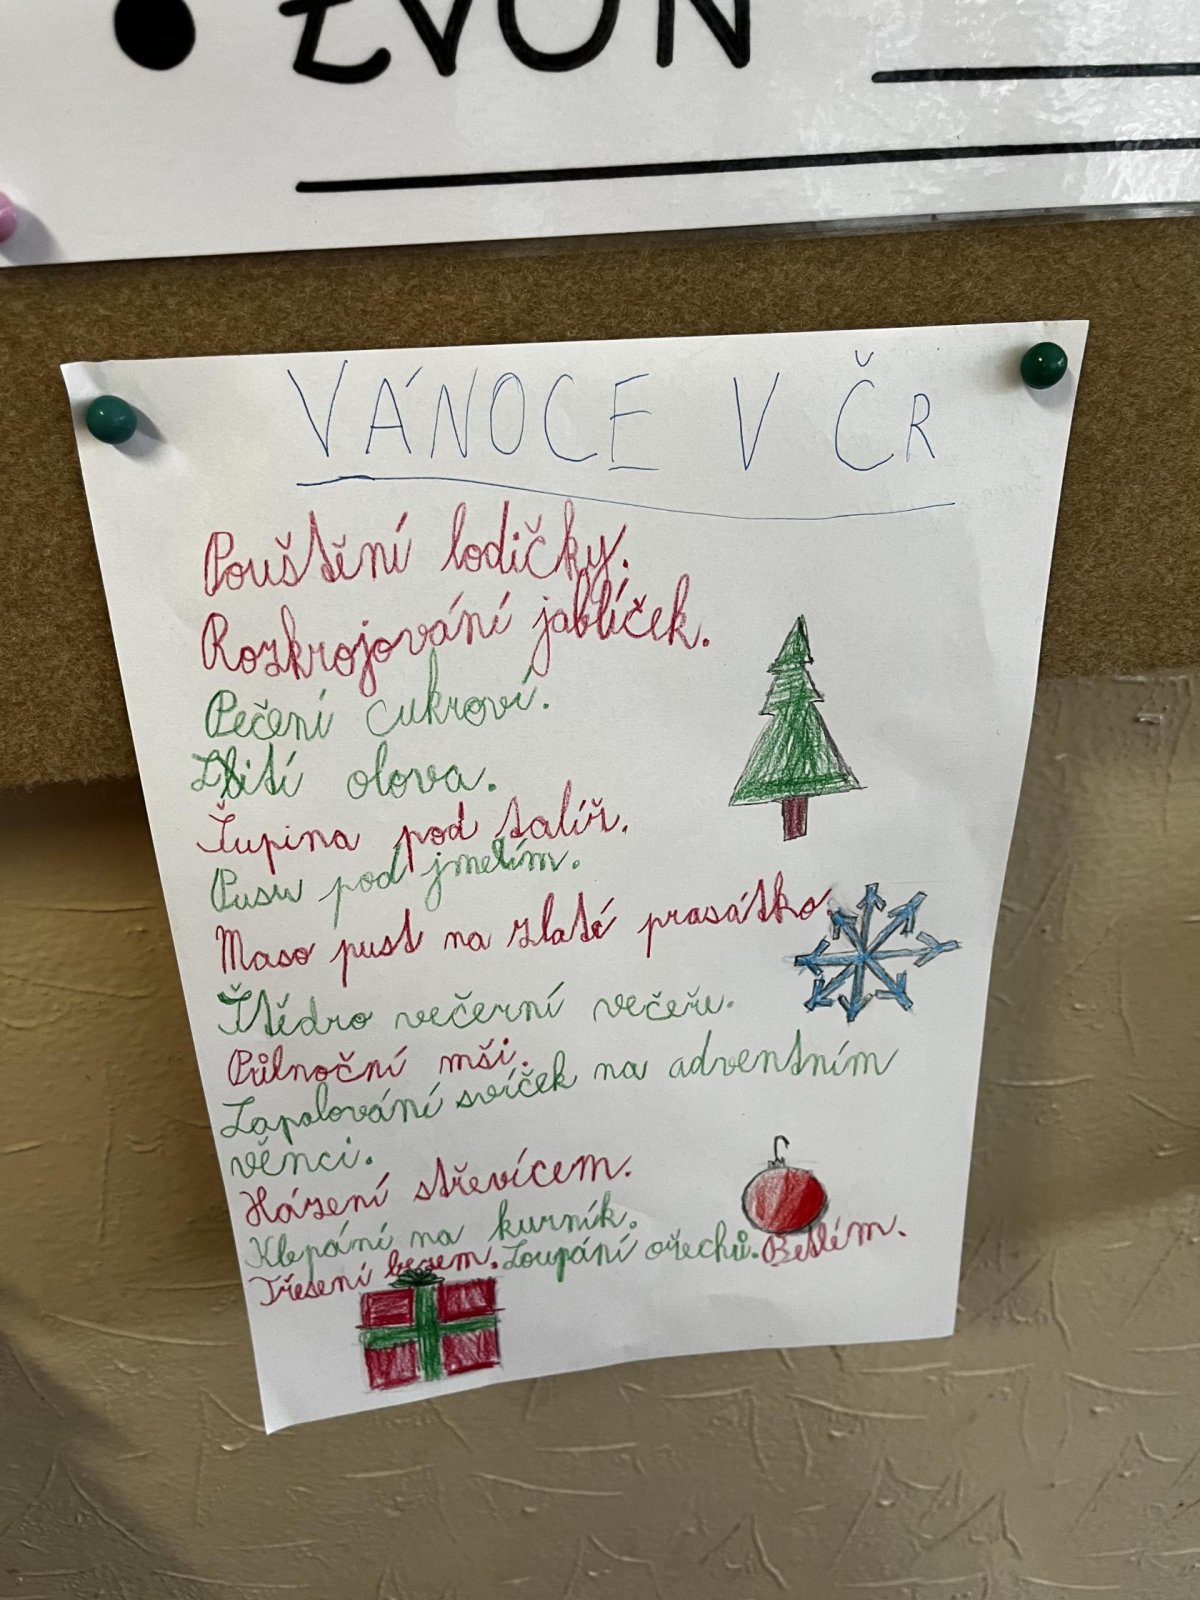 • ZVON
VÁNOCE V ČR
Pouštění lodičky.
Rozkrojování jablíček.
Pečení cukroví.
Lití olova.
Šupina pod talíř.
Pusu pod jmelím.
Maso pust na zlaté prasátko.
Štědro večerní večeře.
Půlnoční mši.
Zapalování svíček na adventním
věnci.
Házení střevícem.
Klepání na kurník.
Třesení bezem. Loupání ořechů. Betlém.